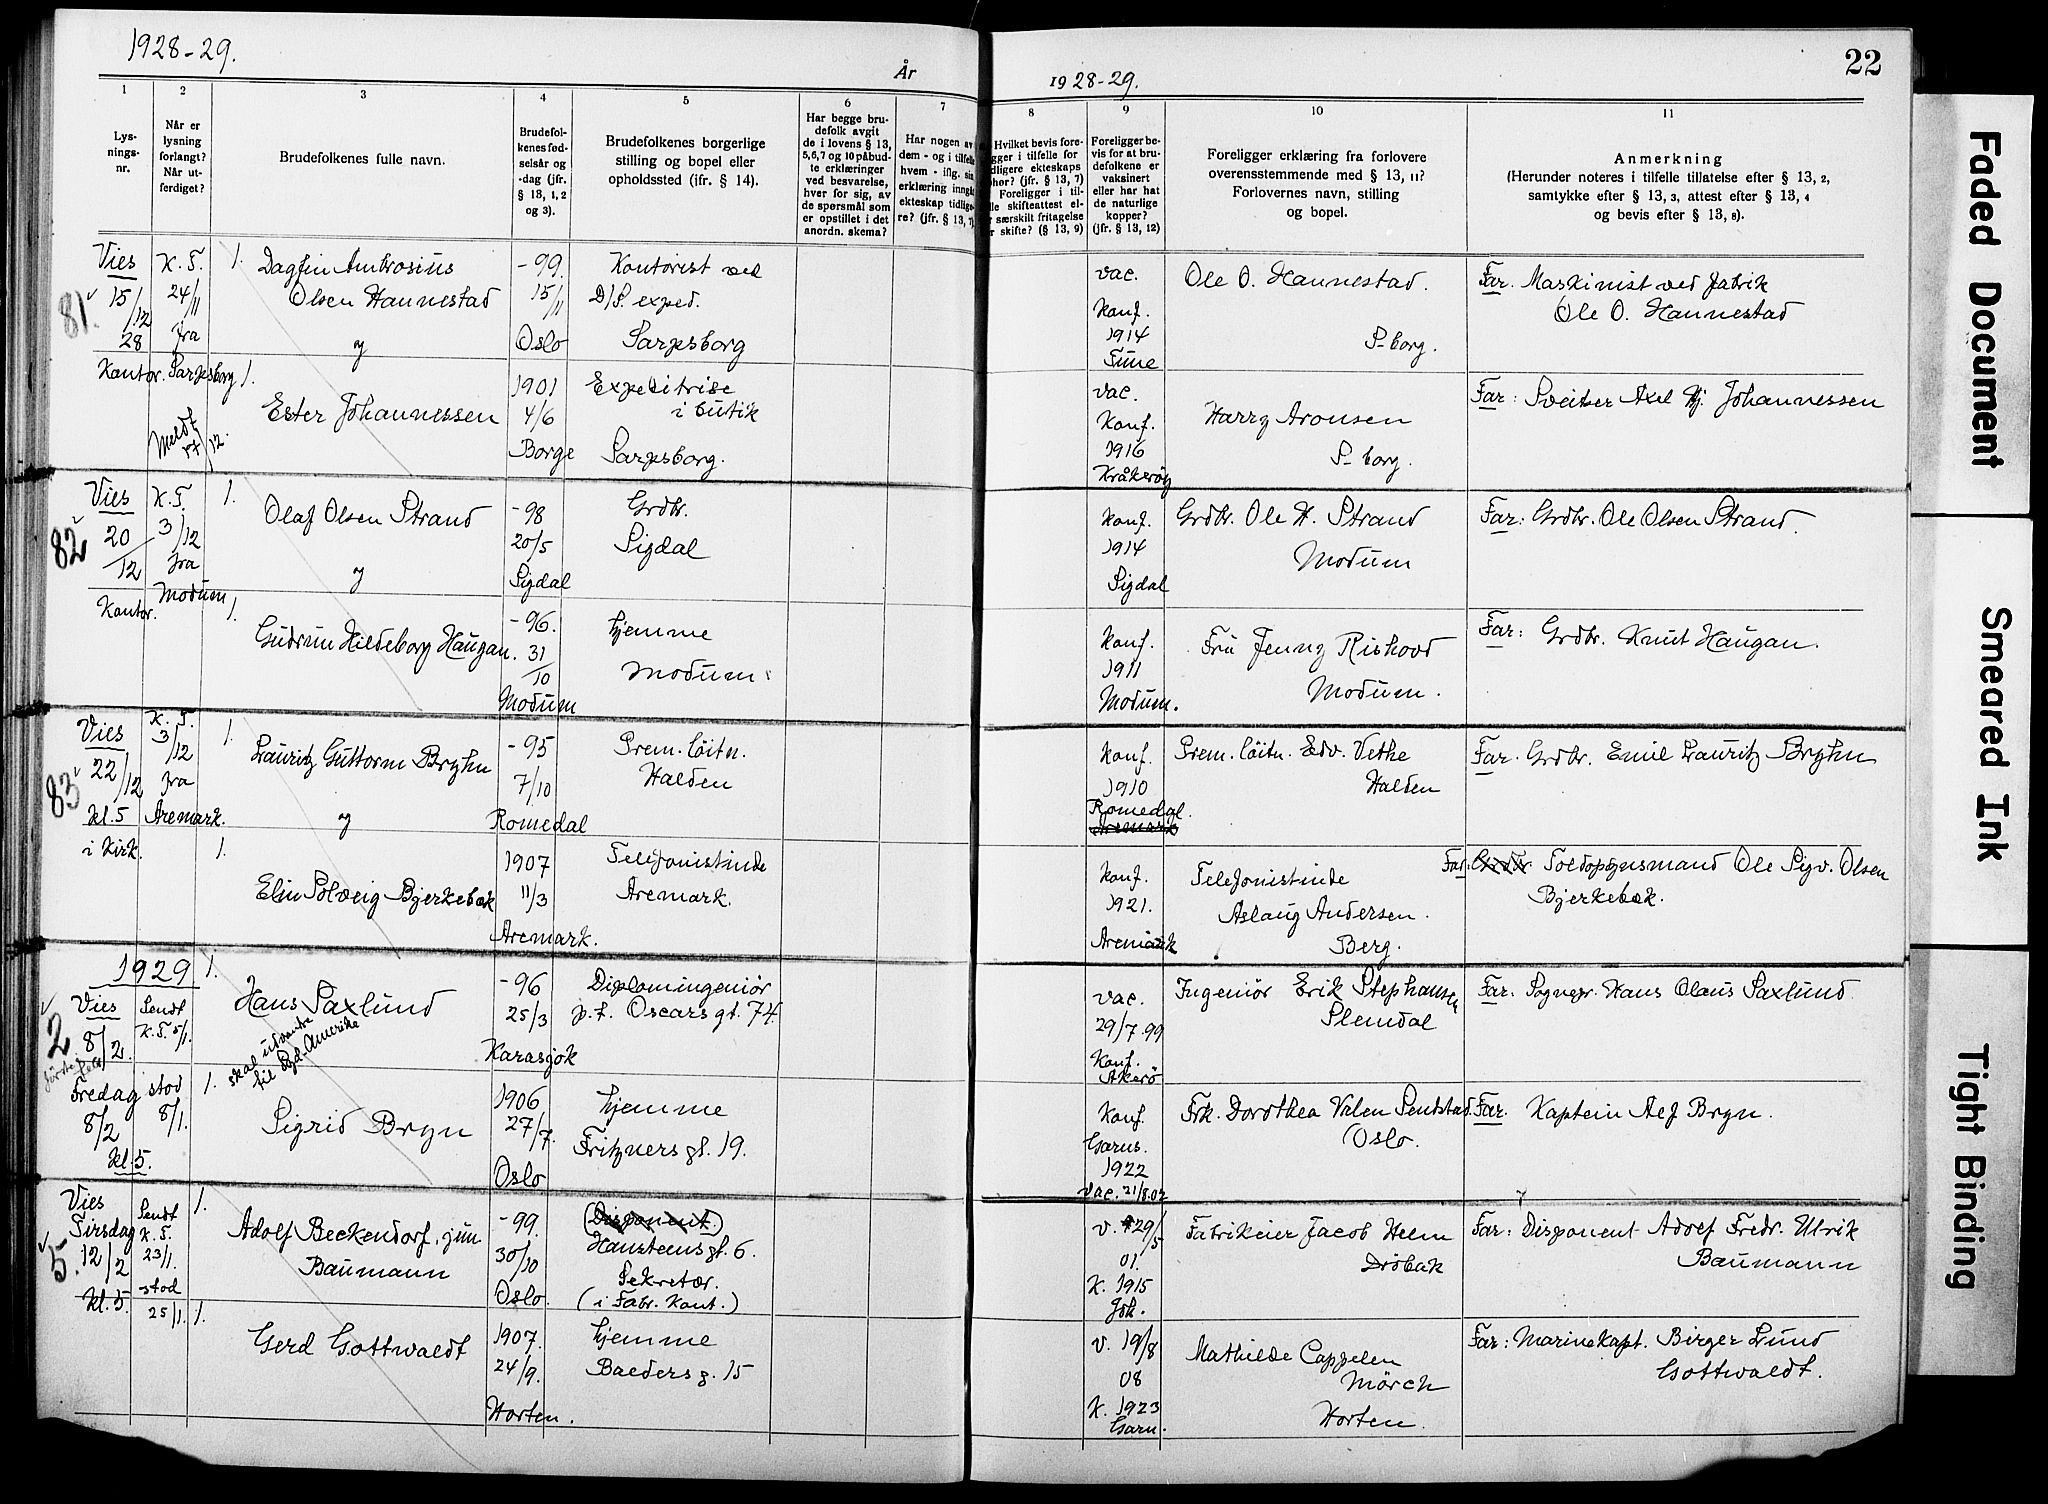 1928-29.
År
1928-29.
22
1
2
3
4
5
6
7
8
9
10
11
Lys-
nings-
nr.
Når er
lysning
forlangt?
Når ut-
ferdiget?
Brudefolkenes fulle navn.
Brudefol-
kenes fød-
selsår og
-dag (jfr.
§ 13, 1, 2
og 3).
Brudefolkenes borgerlige
stilling og bopel eller
opholdssted (jfr. § 14).
Har begge bru-
defolk avgit
de i lovens § 13,
5,6,7 og 10 påbud-
te erklæringer
ved besvarelse,
hver for sig, av
de spørsmål som
er opstillet i det
anordn. skema?
Har nogen av
dem - og i tilfelle
hvem - iflg. sin
erklæring inngått
ekteskap tidlige-
re? (jfr. § 13, 7)
Hvilket bevis fore-
gger i tilfelle for
dligere ekteskaps
phør? (jfr. § 13, 7)
Foreligger i til-
lle skifteattest el-
r særskilt fritagelse
r skifte? (§ 13, 9)
Foreligger be-
vis for at bru-
defolkene er
vaksinert
eller har hat
de naturlige
kopper?
(jfr. § 13, 12)
Foreligger erklæring fra forlovere
overensstemmende med § 13, 11?
Forlovernes navn, stilling
og bopel.
Anmerkning
(Herunder noteres i tilfelle tillatelse efter § 13, 2,
samtykke efter § 13, 3, attest efter § 13, 4
og bevis efter § 13, 8).
81.
Vies
15/12
28
Kontor.
K. T.
24/11
fra
Sarpsborg
Meldt
12.
1. Dagfin Ambrosius
Olsen Hannestad
y
-99.
15/11
Oslo
Kontorist ved
D/S. exped.
Sarpsborg
vac.
Konf.
1914
Tune
Ole O. Hannestad.
S-borg.
Far. Maskinist ved fabrik
Ole O. Hannestad
1.
Ester Johannessen
1901
4/6
Borge
Expeditrise
i butik
Sarpsborg.
vac.
Konf.
1916
Kråkerøy
Harry Aronsen
S-borg.
Far: Sveitser Axel Hj. Johannessen
82
Vies
20/12
Kontor.
K. T.
3/12
fra
Modum
1.
Olaf Olsen Strand
y
-98
20/5
Sigdal
Grdbr.
Sigdal
Konf.
1914
Sigdal
Grdbr. Ole H. Strand
Modum
Far: Grdbr. Ole Olsen Strand.
1.
Gudrun Hildeborg Haugan.
-96.
31/10
Modum
hjemme
Modum
Konf.
1911
Modum.
Fru Jenny Riskovd
Modum.
Far: Grdbr. Knut Haugan.
83
Vies
22/12
kl. 5
i Kirk.
K. T.
3/12
fra
Aremark.
1.
Lauritz Guttorm Bryhn
y
-95
7/10
Romedal
Prem. löitn.
Halden
Konf.
1910
Romedal.
Aremark
Prem. löitn. Edv. Vethe
Halden
Far. Grdbr. Emil Lauritz Bryhn
1.
Elin Solveig Bjerkebæk
1907
11/3
Aremark.
Telefonistinde
Aremark.
Konf.
1921.
Aremark
Telefonistinde
Aslaug Andersen.
Berg.
Far: Grdbr Toldopsynsmand Ole Sigv. Olsen
Bjerkebæk.
1929
2
Vies
8/2
Fredag
8/2
kl. 5.
Sendt
K. T. 5/1.
stod
8/1.
1.
Hans Saxlund
skal utvandre
til Syd-Amerika
-96
25/3
Karasjok
Diplomingeniör
p.t. Oscars gt. 74
vac.
29/7.99
Konf.
Akerö
Ingeniör Erik Stephansen
Slemdal
Far: Sognepr. Hans Olaus Saxlund
1.
Sigrid Bryn
1906
27/7.
Oslo
hjemme
Fritzners gt. 19.
Konf.
Garns.
1922
Vac. 21/8.07
Frk. Dorothea Valen Sendstad
Oslo.
Far. Kaptein Alf Bryn.
5.
Vies
Tirsdag
12/2
kl. 5.
Sendt
K. T.
23/1.
stod
25/1.
1.
Adolf Beckendorf, jun
Baumann
-99.
30/10
Oslo.
(Disponent.)
Hansteensgt. 6.
Sekretær.
(i Fabr. Kont.)
v. 29/5
01.
K. 1915
Joh.
Fabrikeier Jacob Helm
Dröbak
Far: Disponent Adolf Fredr. Ulrik
Baumann
1.
Gerd Gottwaldt
1907.
24/9.
Horten.
hjemme
Baldersg. 15
v. 19/8
08
K. 1923
Garn.
Mathilde Cappelen
Mörch
Horten.
Far: Marinekapt. Birger Lund
Gottwaldt.
Faded Document
Smeared Ink
Tight Binding